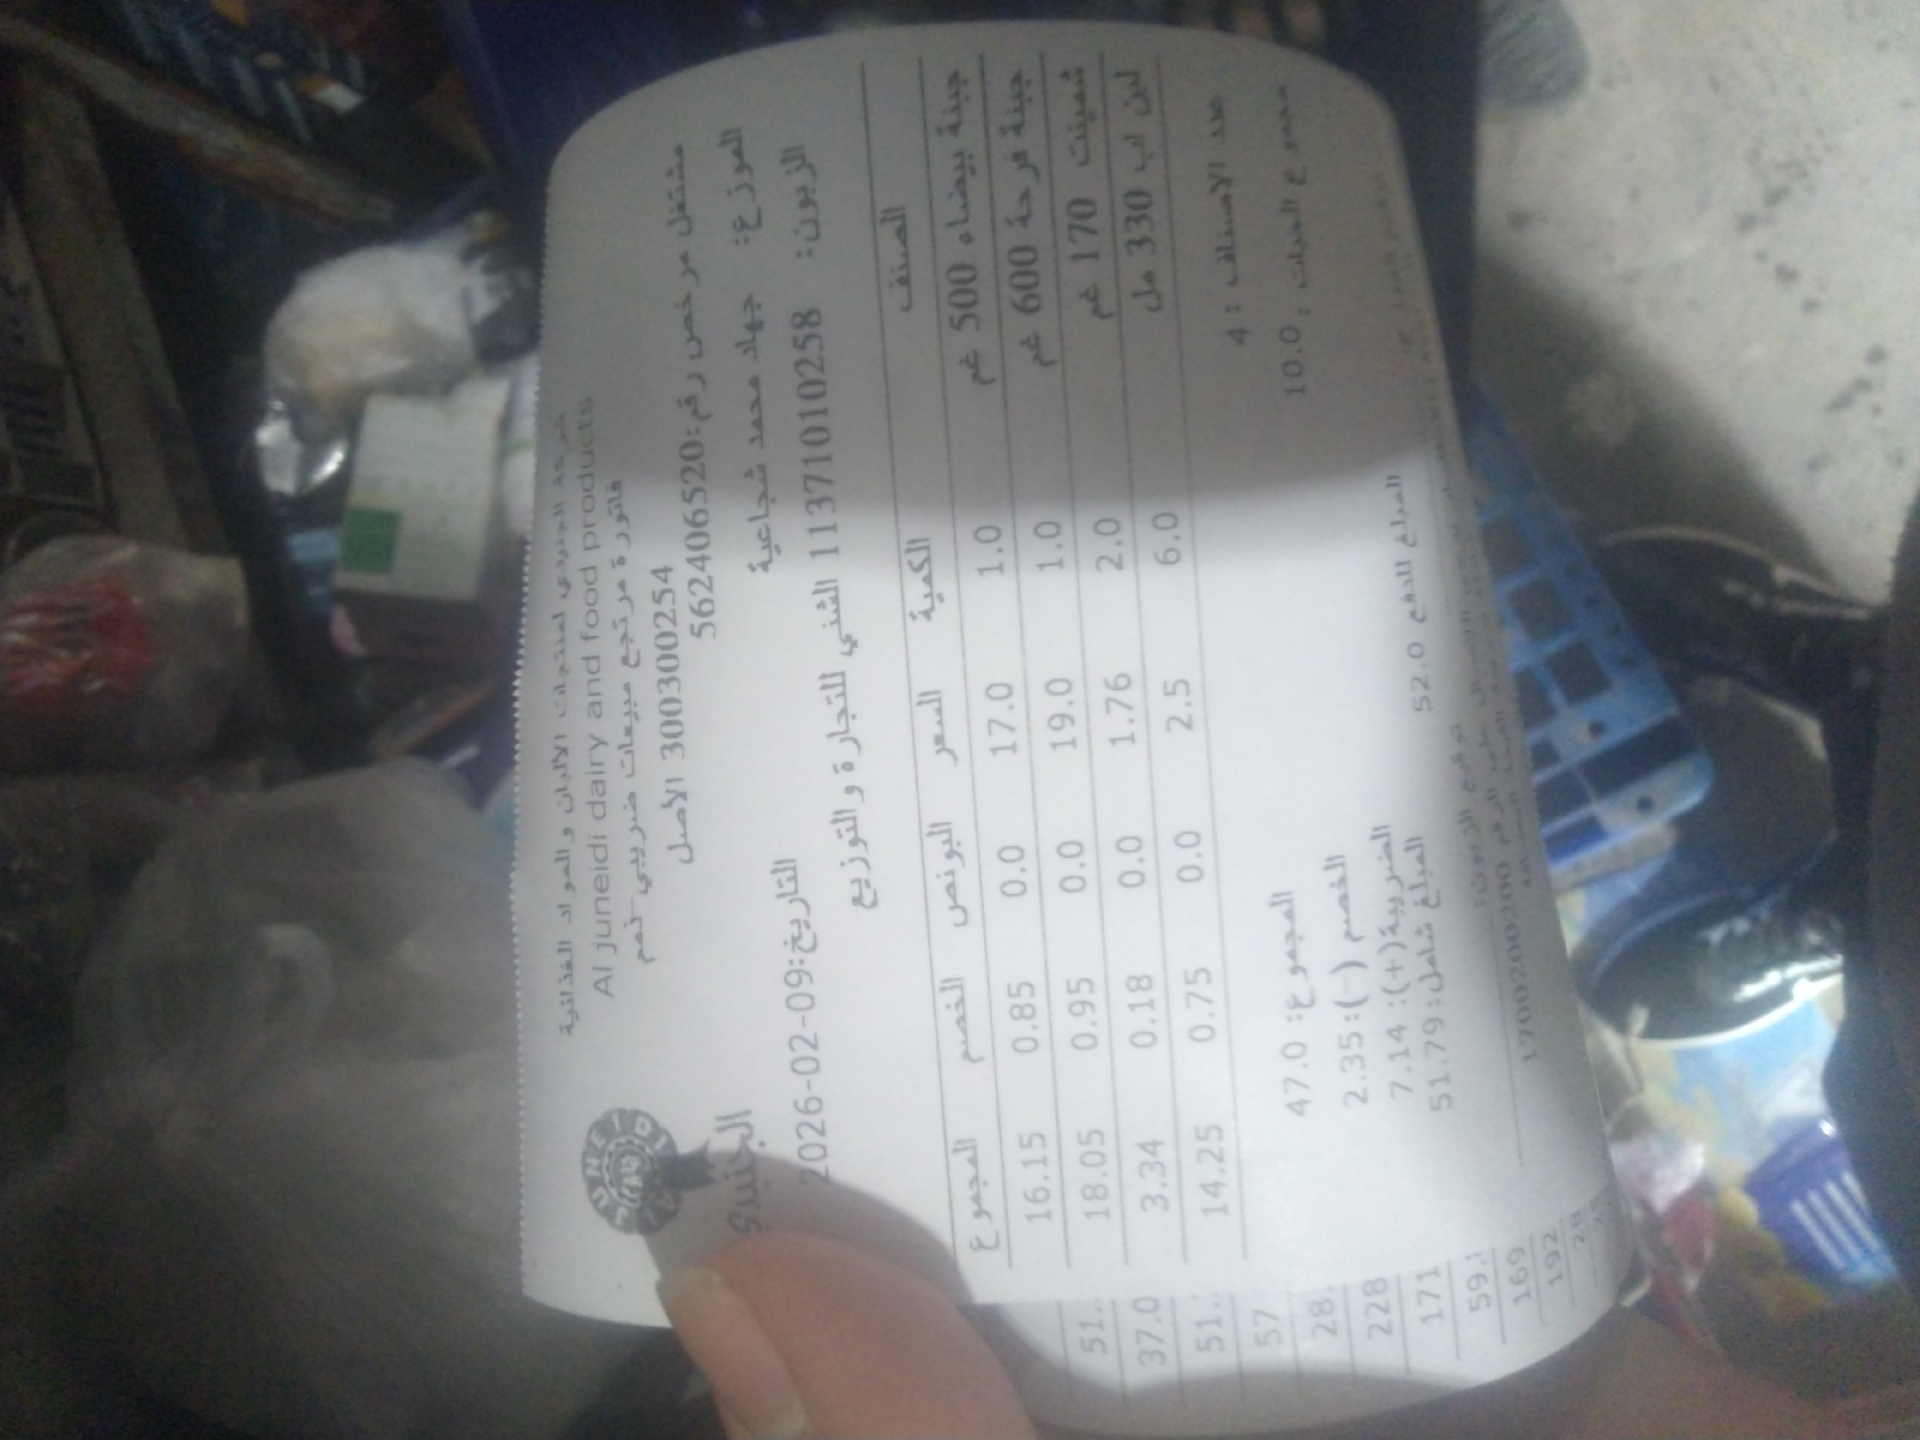 JUNEIDI
الجنيدي
شركة الجنيدي لمنتجات الالبان والمواد الغذائية
Al juneidi dairy and food products
فاتورة مرتجع مبيعات ضريبي-خصم
3003000254 الأصل
مشتغل مرخص رقم:562406520
الموزع: جهاد محمد شجاعية
التاريخ:2026-02-09
الزبون: 11371010258 الشني للتجارة والتوزيع
الصنف الكمية السعر البونص الخصم المجموع
جبنة بيضاء 500 غم 1.0 17.0 0.0 0.85 16.15
جبنة فرحة 600 غم 1.0 19.0 0.0 0.95 18.05
شمينت 170 غم 2.0 1.76 0.0 0.18 3.34
لبن اب 330 مل 6.0 2.5 0.0 0.75 14.25
عدد الاصناف : 4
مجموع الحبات : 10.0
المجموع: 47.0
الخصم (-): 2.35
الضريبة(+): 7.14
المبلغ شامل: 51.79
المبلغ للدفع 52.0
توقيع الزبون:
1700200200
51.
37.0
51.
57
28.
228
171
59.
169
192
28